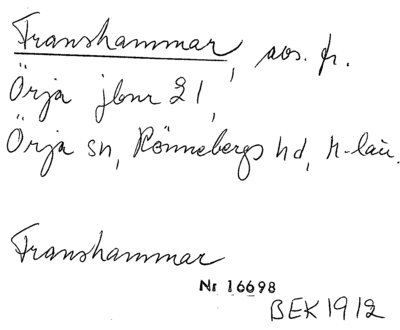 Franshammar, avs. fr.
Örja jbnr 21,
Örja sn, Rönnebergs hd, M-län.
Franshammar
Nr 16698
BEK 1912